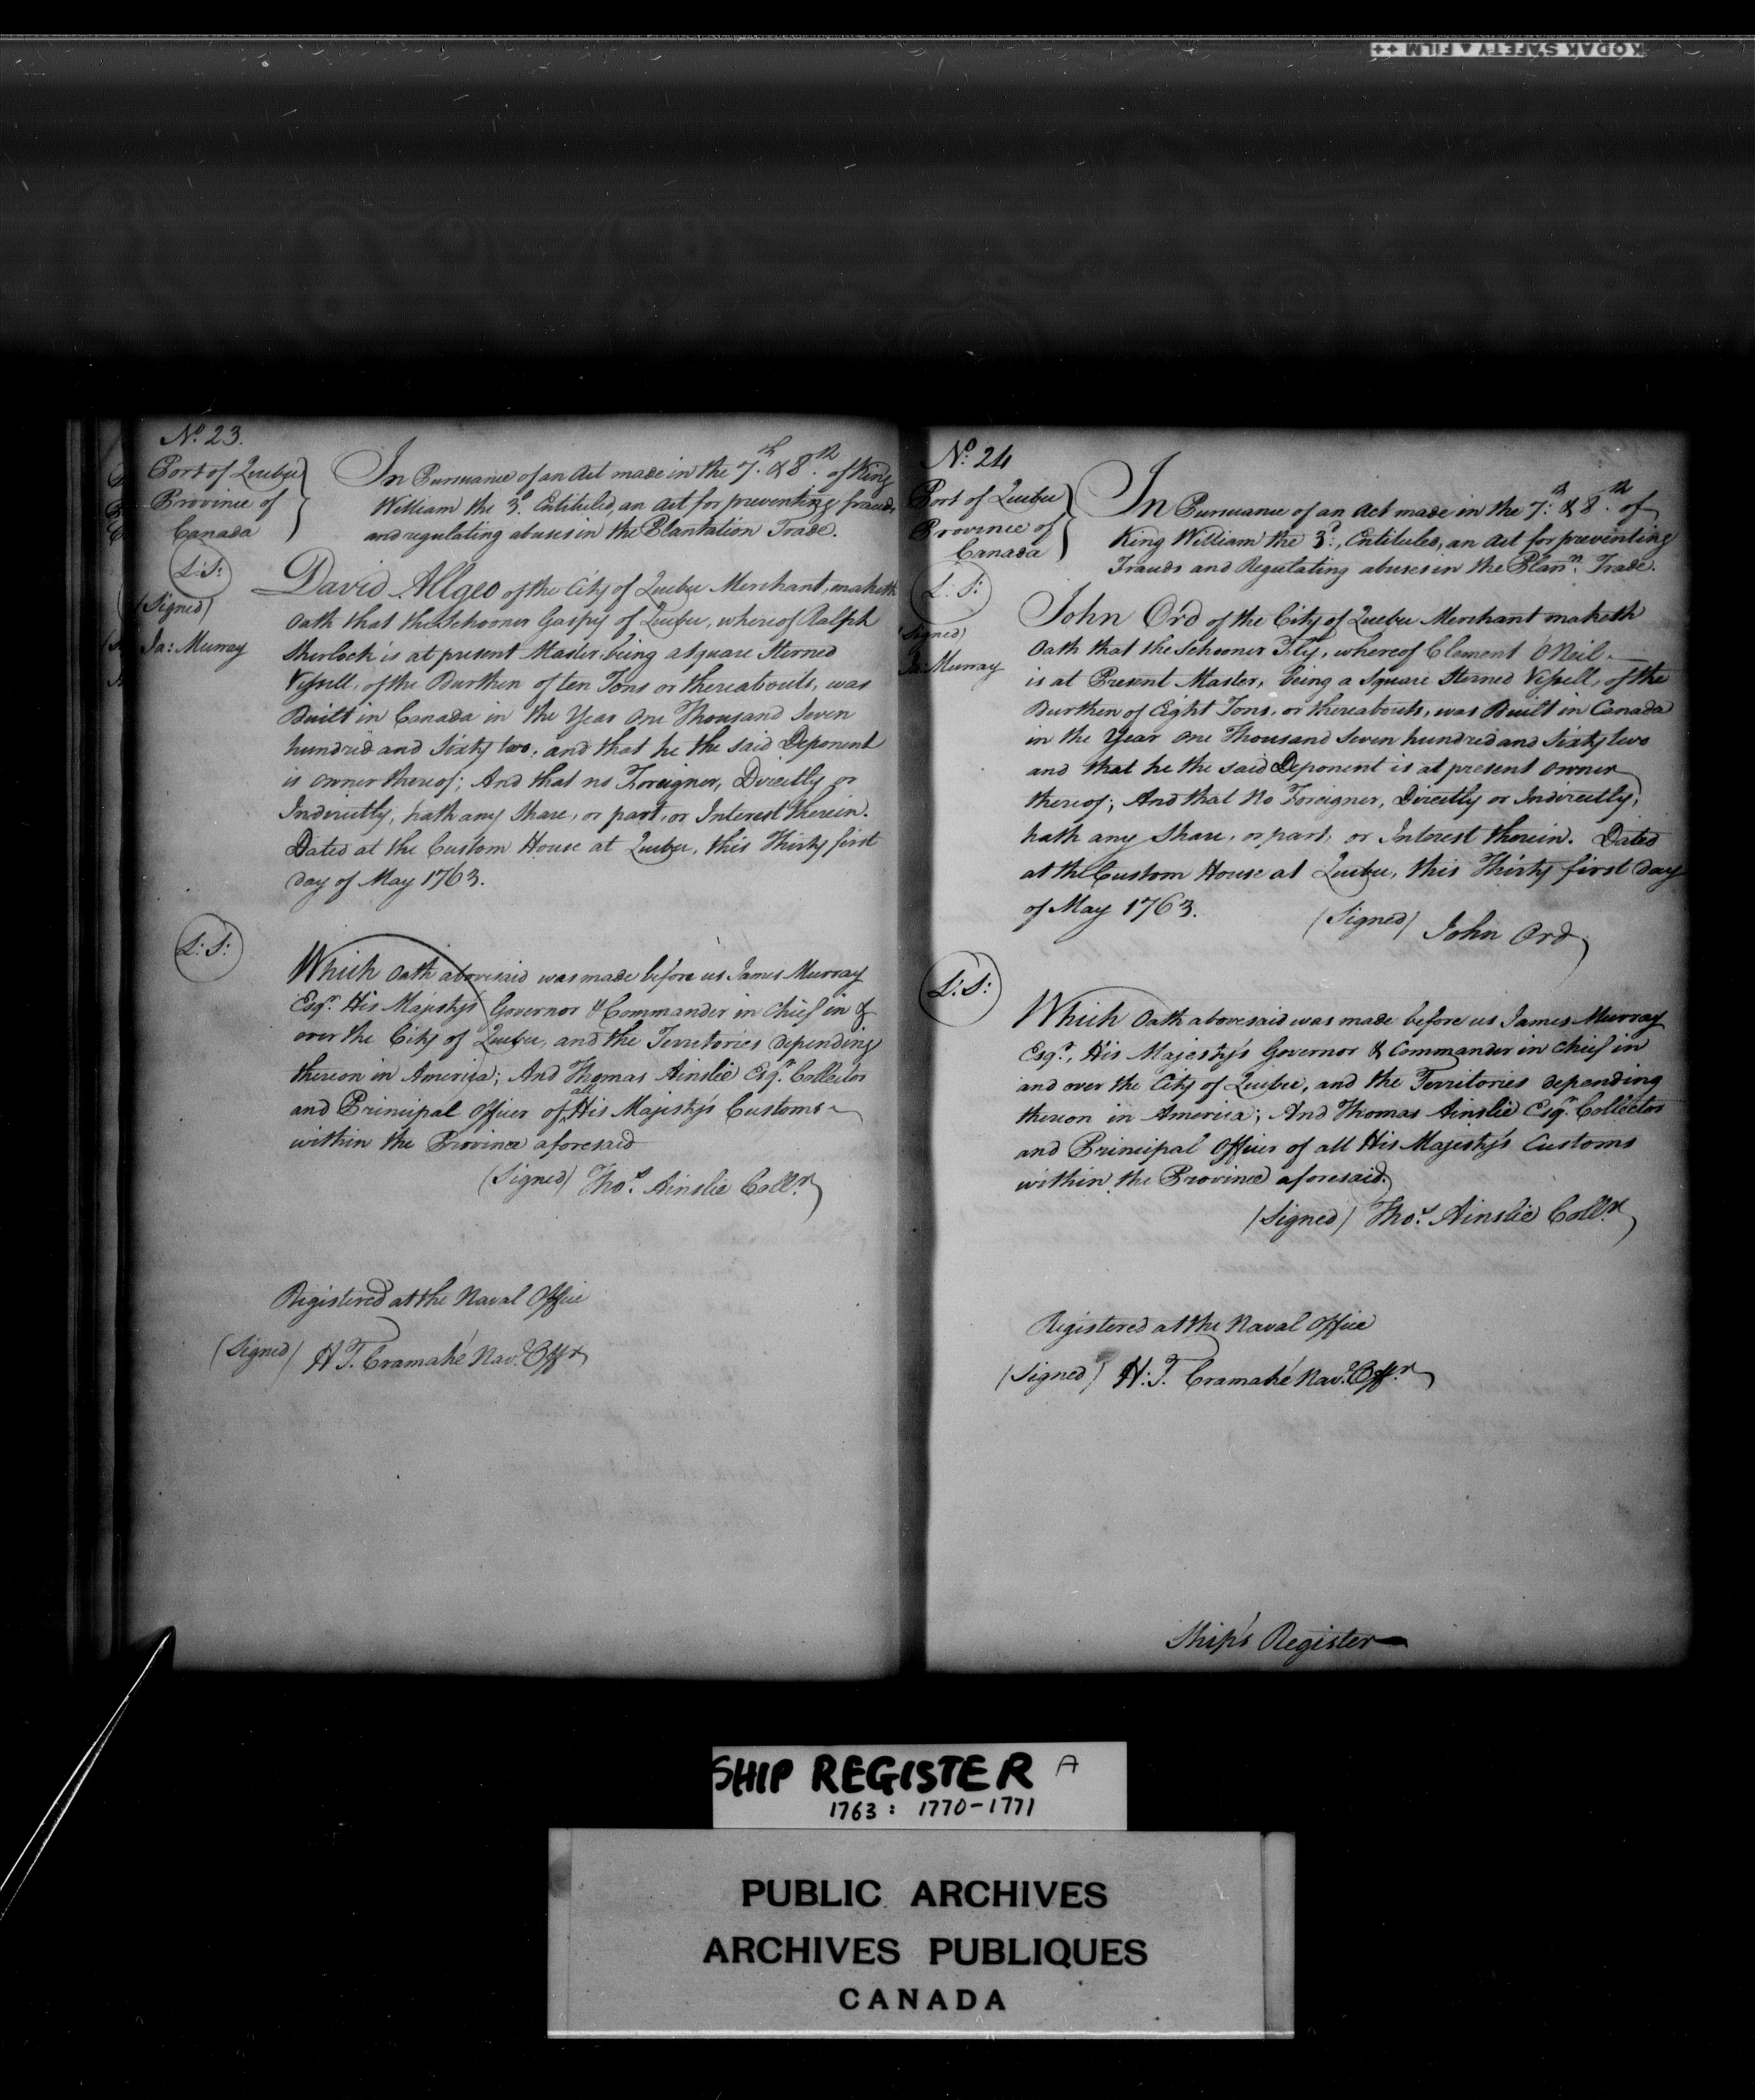 KODAK SAFETY FILM ++
No. 23.
Port of Quebec
Province of
Canada
In Pursuance of an Act made in the 7th. & 8th. of King
William the 3d. Entituled, an Act for preventing frauds
and regulating abuses in the Plantation Trade.
L:S:
(Signed)
Ja: Murray
David Allgeo of the City of Quebec Merchant, maketh
Oath that the Schooner Gaspy of Quebec, whereof Ralph
Sherlock is at present Master, being a square Sterned
Vessell, of the Burthen of ten Tons or thereabouts, was
Built in Canada in the Year One Thousand Seven
hundred and Sixty two, and that he the said Deponent
is Owner thereof; And that no Foreigner, Directly or
Indirectly, hath any Share, or part, or Interest therein.
Dated at the Custom House at Quebec, this Thirty first
day of May 1763.
L:S:
Which Oath abovesaid was made before us James Murray
Esqr. His Majesty's Governor & Commander in Chief in &
over the City of Quebec, and the Terretories depending
thereon in America; And Thomas Ainslie Esqr. Collector
and Principal Officer of all His Majesty's Customs
within the Province aforesaid
(Signed) Thos. Ainslie Collr.
Registered at the Naval Office
(Signed) H T. Cramahé Navl. Offr
No. 24
Port of Quebec
Province of
Canada
In Pursuance of an Act made in the 7th: & 8th. of
King William the 3d:, Entituled, an Act for preventing
Frauds and Regulating abuses in the Plann. Trade.
L:S:
(Signed)
Ja: Murray
John Ord of the City of Quebec Merchant maketh
Oath that the Schooner Fly, whereof Clement ONeil
is at Present Master, being a Square Sterned Vessell, of the
Burthen of Eight Tons, or thereabouts, was Built in Canada
in the Year One Thousand Seven hundred and Sixty two
and that he the said Deponent is at present Owner
thereof; And that No Foreigner, Directly or Indirectly,
hath any Share, or part, or Interest therein. Dated
at the Custom House at Quebec, this Thirty first day
of May 1763.
(Signed) John Ord
L:S:
Which Oath abovesaid was made before us James Murray
Esqr., His Majesty's Governor & Commander in Chief in
and over the City of Quebec, and the Territories depending
thereon in America; And Thomas Ainslie Esqr. Collector
and Principal Officer of all His Majesty's Customs
within the Province aforesaid.
(Signed) Thos. Ainslie Collr.
Registered at the Naval Office
(Signed) H:T. Cramahé Navl. Offr.
Ship's Register
SHIP REGISTER A
1763: 1770-1771
PUBLIC ARCHIVES
ARCHIVES PUBLIQUES
CANADA